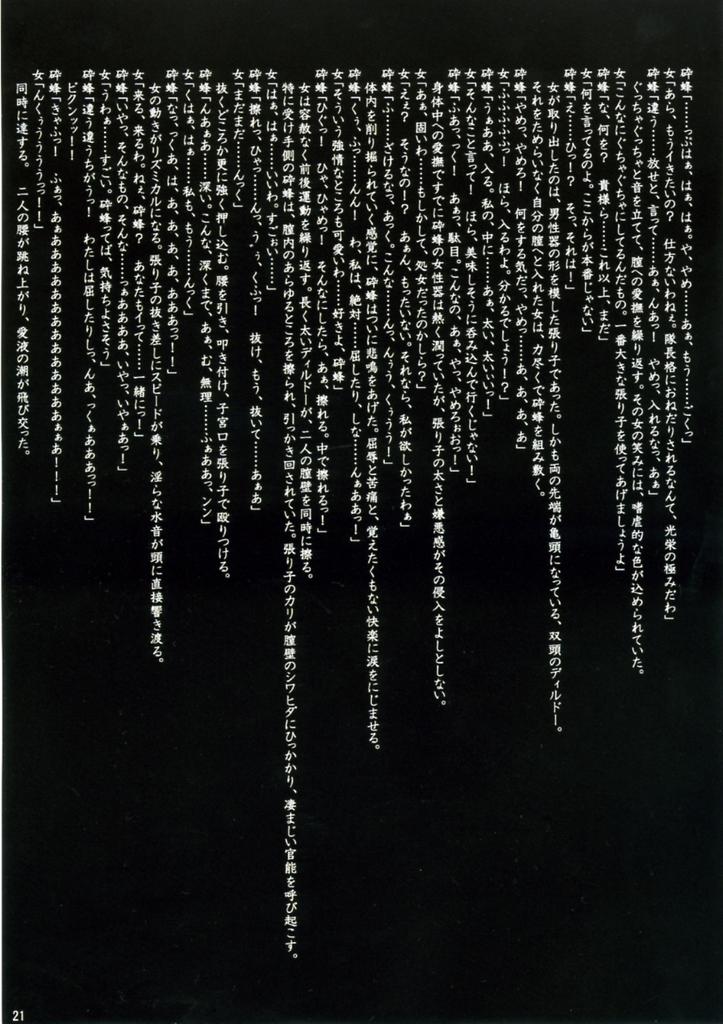 砕蜂「……っぷはぁ、はぁ、はぁ。や、やめ……あぁ、もう……ごくっ」
女「あら、もうイきたいの？　仕方ないわねぇ。隊長格におねだりされるなんて、光栄の極みだわ」
砕蜂「違う……放せと、言って……あぁ、んあっ！　やめっ、入れるなっ、あぁ」
ぐっちゃぐっちゃと音を立てて、膣への愛撫を繰り返す。その女の笑みには、嗜虐的な色が込められていた。
女「こんなにぐちゃぐちゃにしてるんだもの。一番大きな張り子を使ってあげましょうよ」
砕蜂「な、何を？　貴様ら……これ以上、まだ」
女「何を言ってるのよ。ここからが本番じゃない」
砕蜂「え……ひっ！？　そっ、それは！」
女が取り出したのは、男性器の形を模した張り子であった。しかも両の先端が亀頭になっている、双頭のディルドー。
それをためらいなく自分の膣へと入れた女は、力尽くで砕蜂を組み敷く。
砕蜂「やめっ、やめろ！　何をする気だっ、やめっ……あ、あ、あ、あ」
女「ふふふふふっ！　ほら、入るわよ。分かるでしょう！？」
砕蜂「うぁああ、入る。私の、中に……あぁ、太い、太いいっ！」
女「そんなこと言って！　ほら、美味しそうに呑み込んで行くじゃない！」
砕蜂「ふあっっく！　あぁっ、駄目。こんなの、あぁ、や、やめろぉおっ！」
身体中への愛撫ですでに砕蜂の女性器は熱く潤っていたが、張り子の太さと嫌悪感がその侵入をよしとしない。
女「あぁ、固いわ……もしかして、処女だったのかしら？」
女「えぇ？　そうなの！？　あぁん、もったいない。それなら、私が欲しかったわぁ」
砕蜂「ふ……ざけるなっ、あっく。こんな……んっ、んぅう、くぅううう！」
体内を削り掘られていく感覚に、砕蜂はついに悲鳴をあげた。屈辱と苦痛と、覚えたくもない快楽に涙をにじませる。
砕蜂「くぅ、ふっ……んん！　わ、私は、絶対……屈したり、しな……んぁああっ！」
女「そういう強情なところも可愛いわ……好きよ、砕蜂」
砕蜂「ひぐっ！　ひゃ、ひゃめっ！　そんなにしたら、あぁ、擦れる。中で擦れるっ！」
女は容赦なく前後運動を繰り返す。長く太いディルドーが、二人の膣壁を同時に擦る。
特に受け手側の砕蜂は、膣内のあらゆるところを擦られ、引っかき回されていた。張り子のカリが膣壁のシワヒダにひっかかり、凄まじい官能を呼び起こす。
女「はぁ、はぁ……いいわ。すごぉい……」
砕蜂「擦れっ、ひゃっ……んっ、う、ぅ、くふっ！　抜け、もう、抜いて……あぁあ」
女「まだまだ……んっく」
抜くどころか更に強く押し込む。腰を引き、叩き付け、子宮口を張り子で殴りつける。
砕蜂「んあぁあ……深い。こんな、深くまで、あぁ、む、無理……ふぁああっ、ンン」
女「くはぁ、はぁ……私も、もう……んっく」
砕蜂「なっっくあ、は、あ、あ、あ、あああっ！！」
女の動きがリズミカルになる。張り子の抜き差しにスピードが乗り、淫らな水音が頭に直接響き渡る。
女「来る、来るわ。ねぇ、砕蜂？　あなたもイって……一緒にっ！」
砕蜂「いやっ、そんなもの、そんな……ぁああああ、いやっ、いやぁあっ！」
女「うわぁ……すごい。砕蜂ってば、気持ちよさそう」
砕蜂「違、違うちがうっ！　わたしは屈したりしっ、んあ、っくぁあああっっ！」
ビクンッッ！
砕蜂「きゃふっ！　ふぁっ、あぁあああああああああああああああぁぁあ！！！」
女「んくっううううっっ！！」
同時に達する。二人の腰が跳ね上がり、愛液の潮が飛び交った。
21